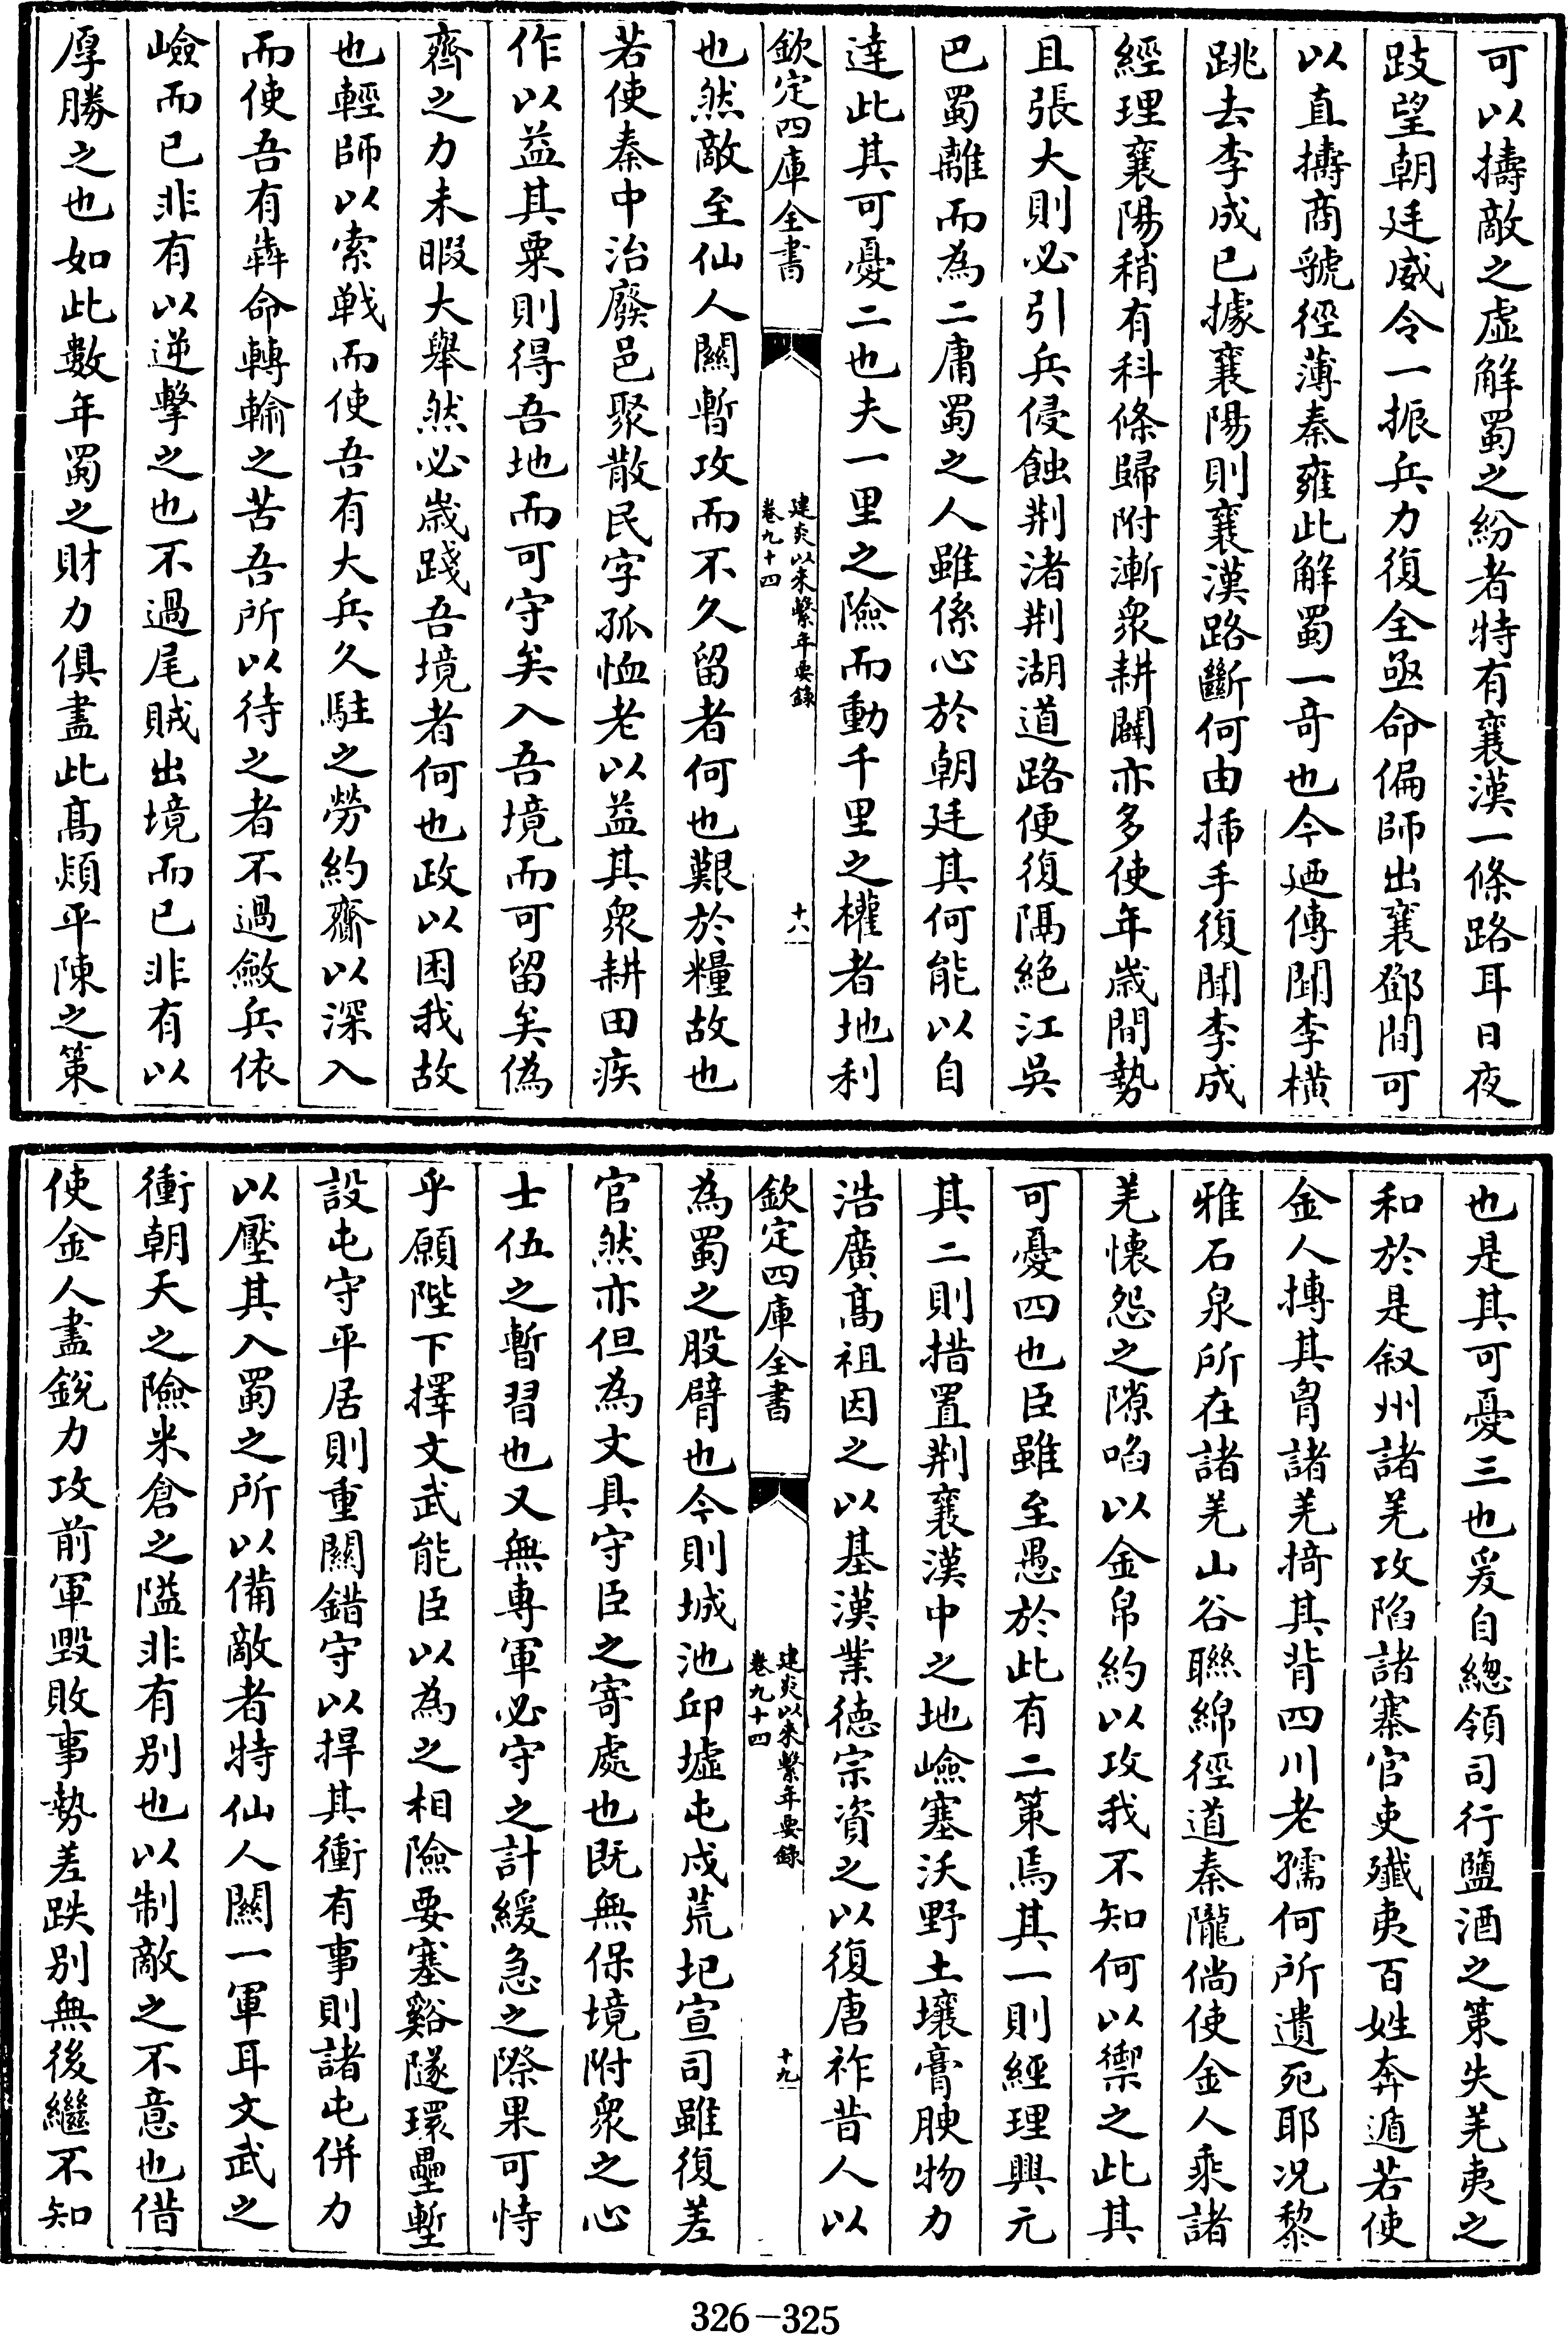 可以擣敵之虛解蜀之紛者特有襄漢一條路耳日夜
跂望朝廷威令一振兵力復全亟命偏師出襄鄧間可
以直擣商虢徑薄秦雍此解蜀一奇也今廼傳聞李橫
跳去李成已據襄陽則襄漢路斷何由揷手復聞李成
經理襄陽稍有科條歸附漸衆耕闢亦多使年歲間勢
且張大則必引兵侵蝕荆渚荆湖道路便復隔絶江吳
巴蜀離而為二庸蜀之人雖係心於朝廷其何能以自
達此其可憂二也夫一里之險而動千里之權者地利
欽定四庫全書
建炎以來繫年要錄
卷九十四
十八
也然敵至仙人關暫攻而不久留者何也艱於糧故也
若使秦中治廢邑聚散民字孤恤老以益其衆耕田疾
作以益其粟則得吾地而可守矣入吾境而可留矣偽
齊之力未暇大舉然必歲踐吾境者何也政以困我故
也輕師以索戰而使吾有大兵久駐之勞約齎以深入
而使吾有犇命轉輸之苦吾所以待之者不過斂兵依
嶮而已非有以逆擊之也不過尾賊出境而已非有以
厚勝之也如此數年蜀之財力俱盡此髙熲平陳之策
也是其可憂三也爰自總領司行鹽酒之策失羌夷之
和於是叙州諸羌攻陷諸寨官吏殲夷百姓奔遁若使
金人搏其胷諸羌掎其背四川老孺何所遺死耶况黎
雅石泉所在諸羌山谷聯綿徑道秦隴倘使金人乘諸
羌懷怨之隙啗以金帛約以攻我不知何以禦之此其
可憂四也臣雖至愚於此有二策焉其一則經理興元
其二則措置荆襄漢中之地嶮塞沃野土壤膏腴物力
浩廣髙祖因之以基漢業德宗資之以復唐祚昔人以
欽定四庫全書
建炎以來繫年要錄
卷九十四
十九
為蜀之股臂也今則城池邱墟屯戍荒圯宣司雖復差
官然亦但為文具守臣之寄處也既無保境附衆之心
士伍之暫習也又無專軍必守之計緩急之際果可恃
乎願陛下擇文武能臣以為之相險要塞谿隧環壘塹
設屯守平居則重關錯守以捍其衝有事則諸屯併力
以壓其入蜀之所以備敵者特仙人關一軍耳文武之
衝朝天之險米倉之隘非有别也以制敵之不意也借
使金人盡銳力攻前軍毀敗事勢差跌别無後繼不知
326—325